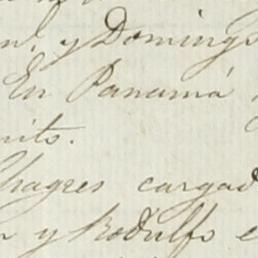 y Domingo
En Panamá
Chagres cargad
y Rodulfo e